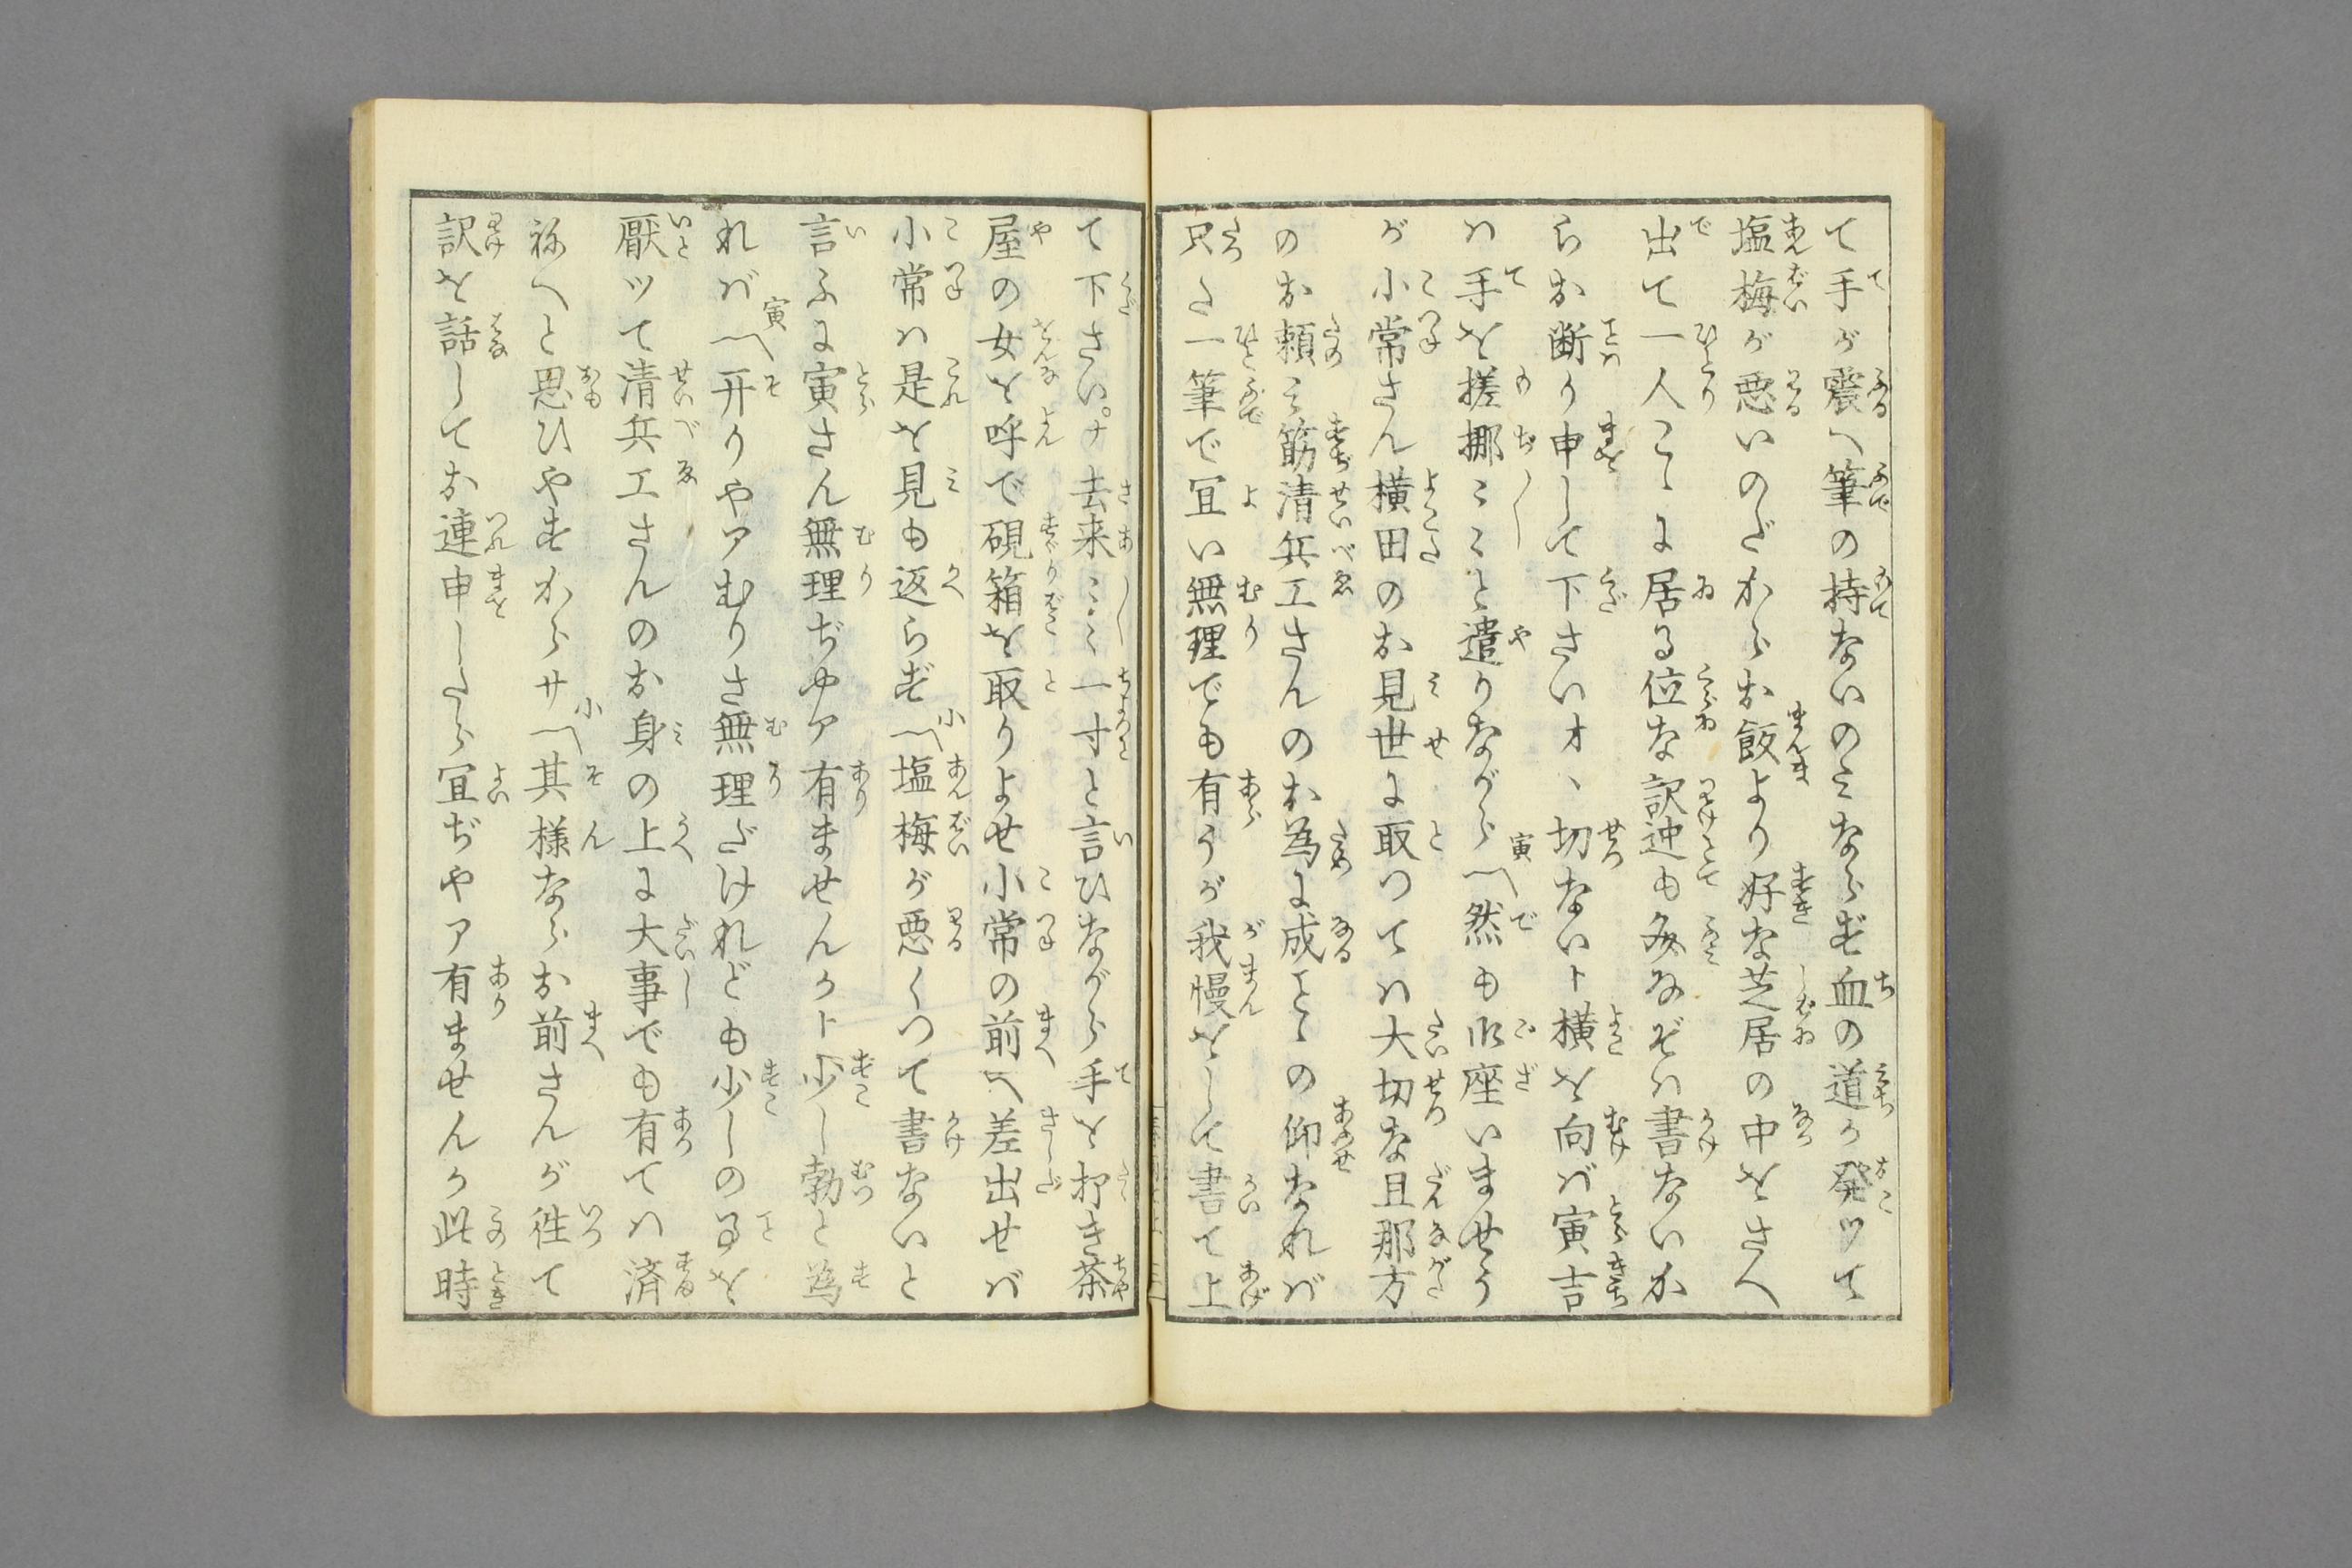 て手が震へ筆の持ないのみならず血の道が発ツて
塩梅が悪いのだからお飯より好な芝居の中をさへ
出て一人こゝに居る位な訳迚も文などは書ないか
らお断り申して下さいオヽ切ないト横を向ば寅吉
ハ手を揉挪〳〵と遣りながら寅〽然も御座いませう
が小常さん横田のお見世に取つてハ大切な旦那方
のお頼み筋清兵エさんのお為に成ことの仰なれば
只た一筆で宜い無理でも有うが我慢をして書て上
て下さい。ナ去来〳〵一寸と言ひながら手を拍き茶
屋の女を呼で硯箱を取りよせ小常の前へ差出せば
小常ハ是を見も返らず小〽塩梅が悪くつて書ないと
言ふに寅さん無理ぢゆア有ませんかト少し勃と為
れば寅〽夫りやアむりさ無理だけれども少しの事を
厭ツて清兵エさんのお身の上に大事でも有てハ済
ねへと思ひやすからサ小〽其様ならお前さんが往て
訳を話してお連申したら宜ぢやア有ませんか此時